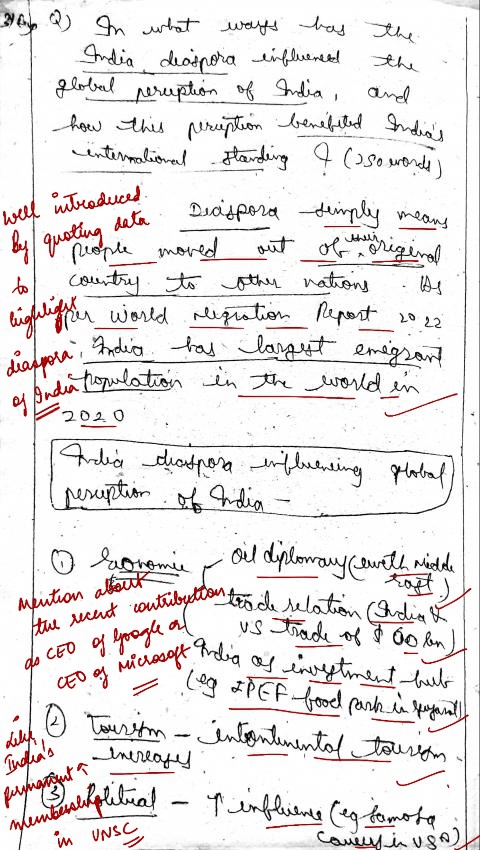 Q) In what ways has the
India diaspora influenced the
global perception of India, and
how this perception benefited India's
international standing ? (250 words)
Well introduced
by quoting data
to
highlight
diaspora
of India
Diaspora simply means
people moved out of their original
country to other nations. As
per World Migration Report 2022
India has largest emigrant
population in the world in
2020
India diaspora influencing global
perception of India –
① Economic
Oil diplomacy (with Middle
East)
trade relation (India &
US trade of $
India as investment hub
(eg food park in Gujarat)
Mention about
the recent contribution
as CEO of Google or
CEO of Microsoft
② Tourism – tourism
increases
③ Political – ↑ influence (eg
in USA)
Like
India's
permanent
membership
in UNSC